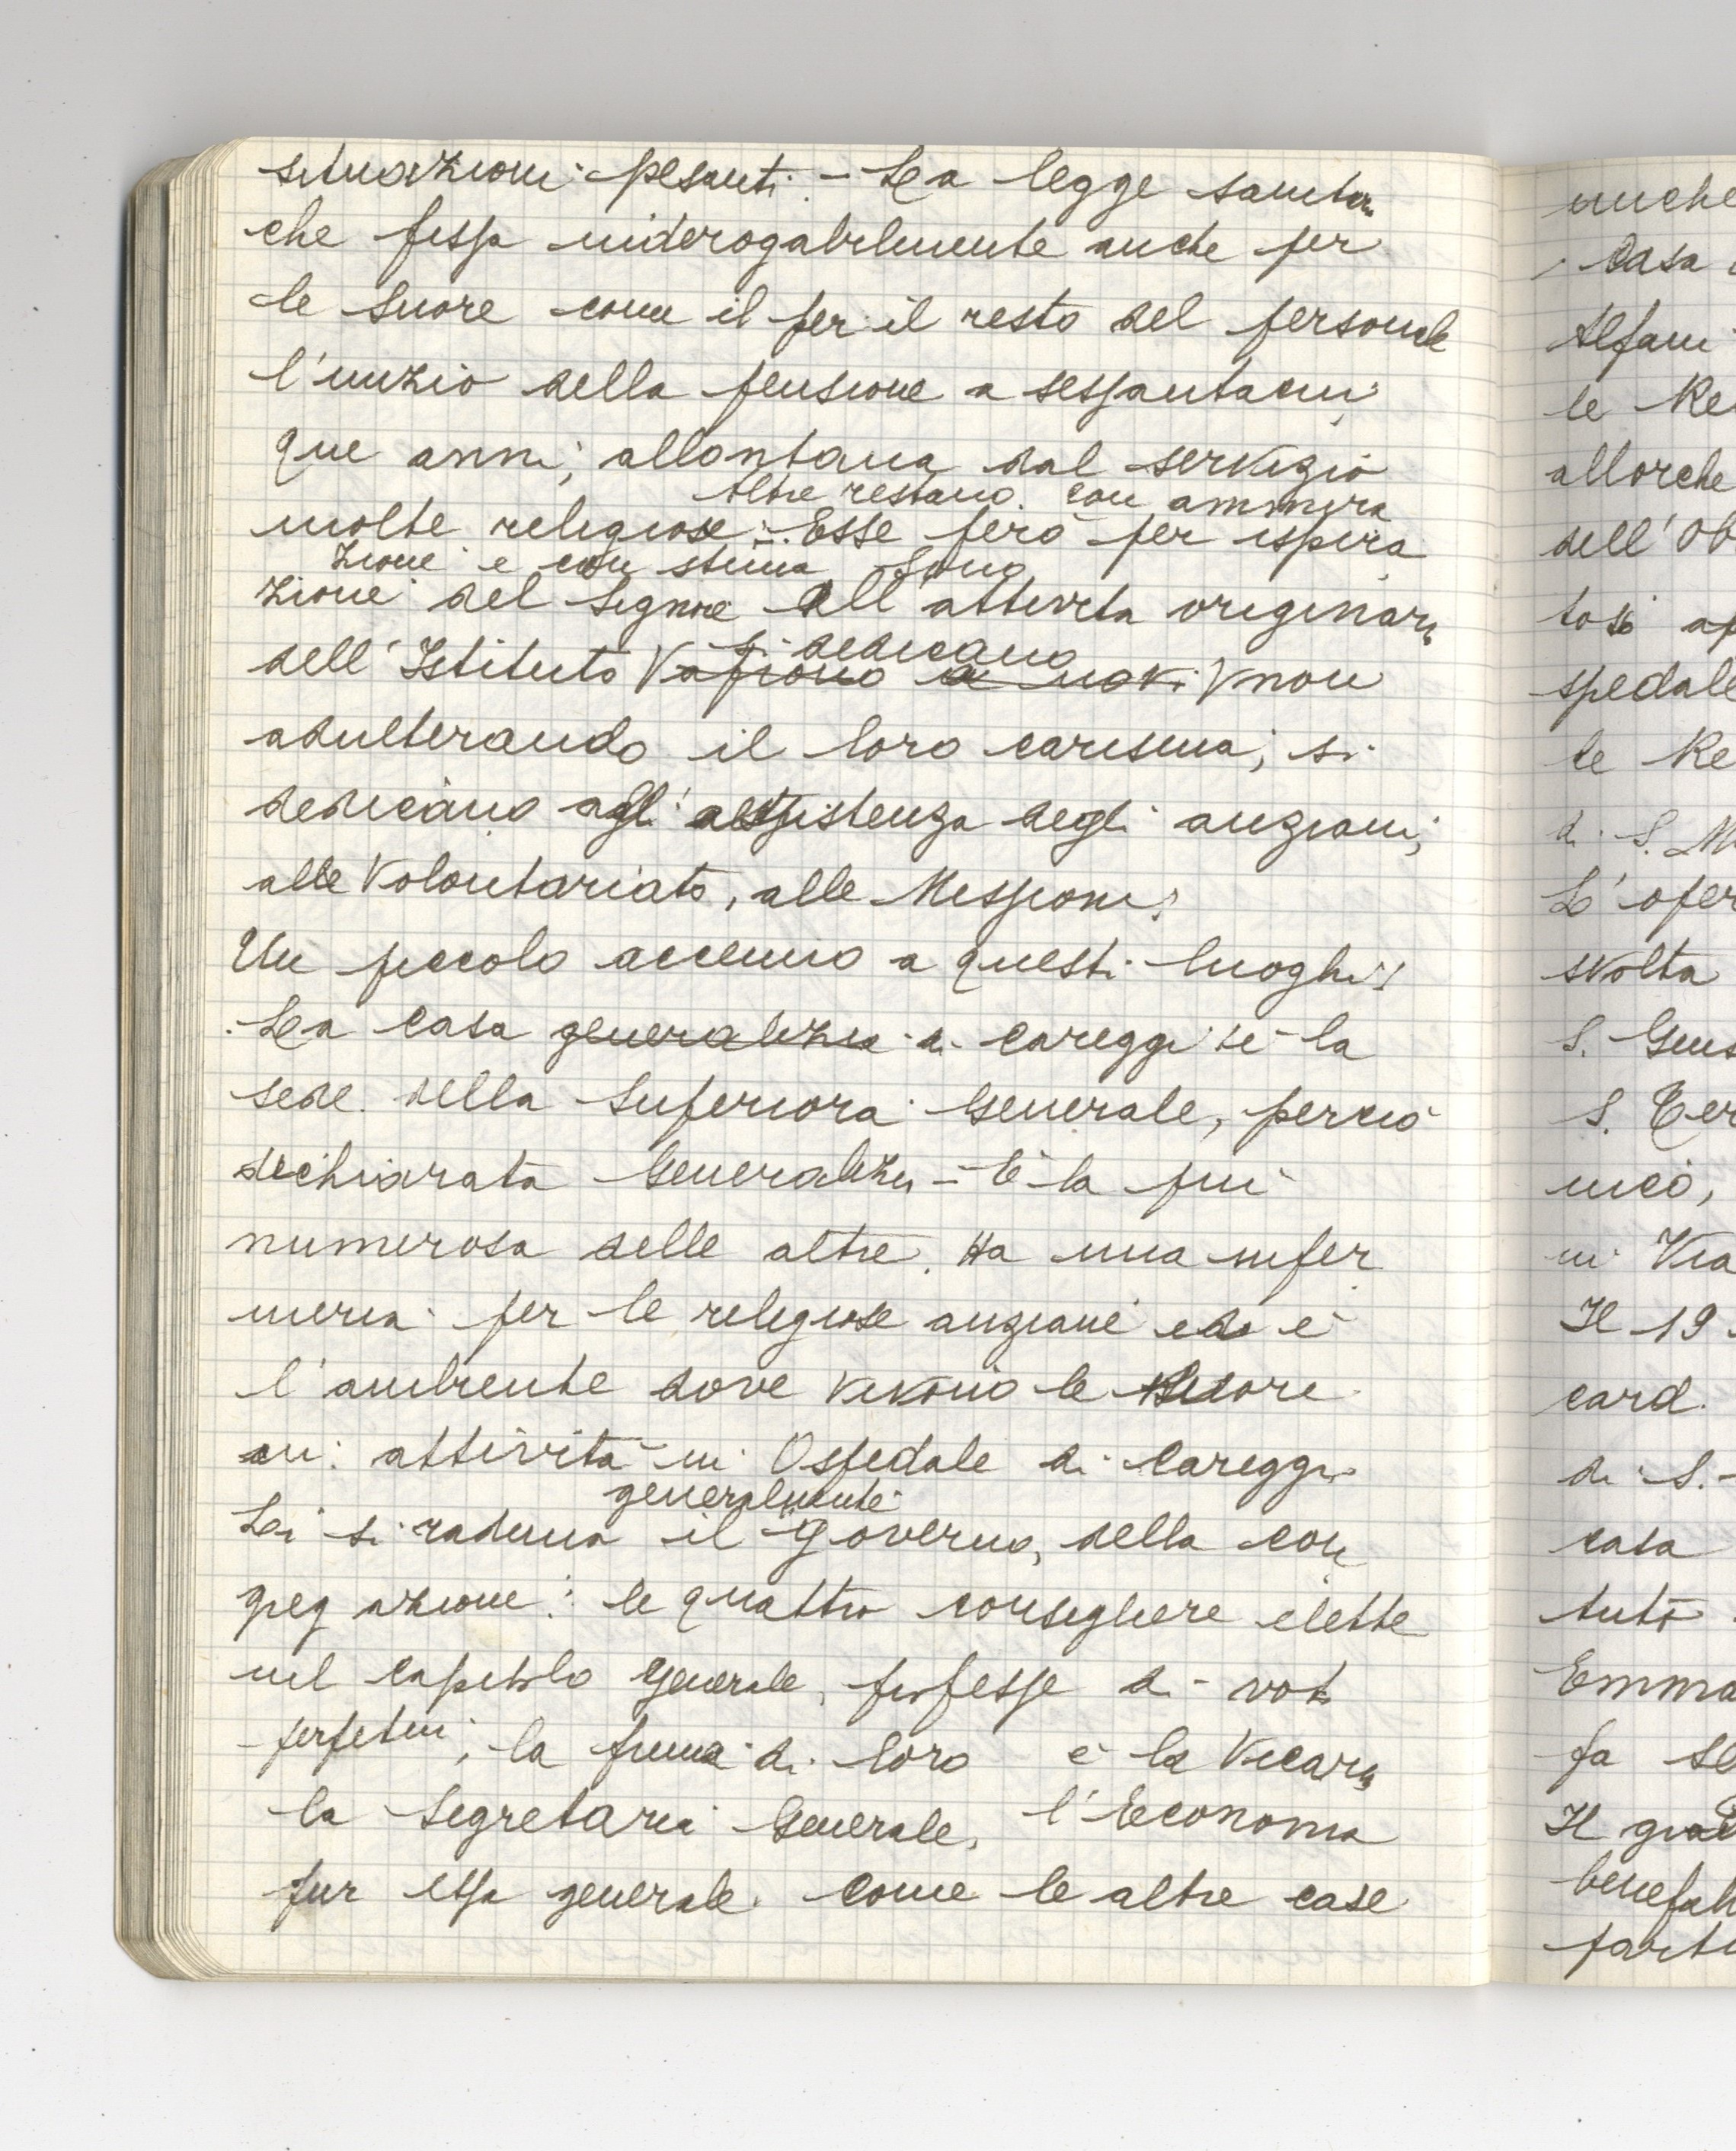 situazioni pesanti. - La legge sanitaria
che fissa inderogabilmente anche per
le Suore come il per il resto del personale
l'inizio della pensione a sessantacin
que anni, allontana dal servizio
Altre restano con ammira
molte religiose. Esse però per ispira
zione e con stima sono
zione del Signore all'attività originaria
si dedicano
dell'Istituto Vafrono a nuovi non
adulterando il loro carisma, si
dedicano agli assistenza degli anziani,
alle Volontariato, alle Missioni.
Un piccolo accenno a questi luoghi!
La casa generalizia di Careggi è la
sede della Superiora Generale, perciò
dichiarata Generalizia - È la più
numerosa delle altre. Ha una infer
meria per le religiose anziane ed è
l'ambiente dove vivono le suore
in attività in Ospedale di Careggi
generalmente
Lei si raduna il Governo, della con
gregazione: le quattro consigliere elette
nel capitolo generale, professe di voti
perpetui, la prima di loro è la Vicaria
la Segretaria Generale, l'Economa
pur essa generale. Come le altre case
anche
casa
Alfani
le Re
allorche
dell'Ob
tosi ap
spedale
le Re
di S. M
L'oper
svolta
S. Gius
S. Ter
nico,
in Via
Il 19
card.
di S.
casa
tuto
Emma
fa se
Il gra
benefat
parti